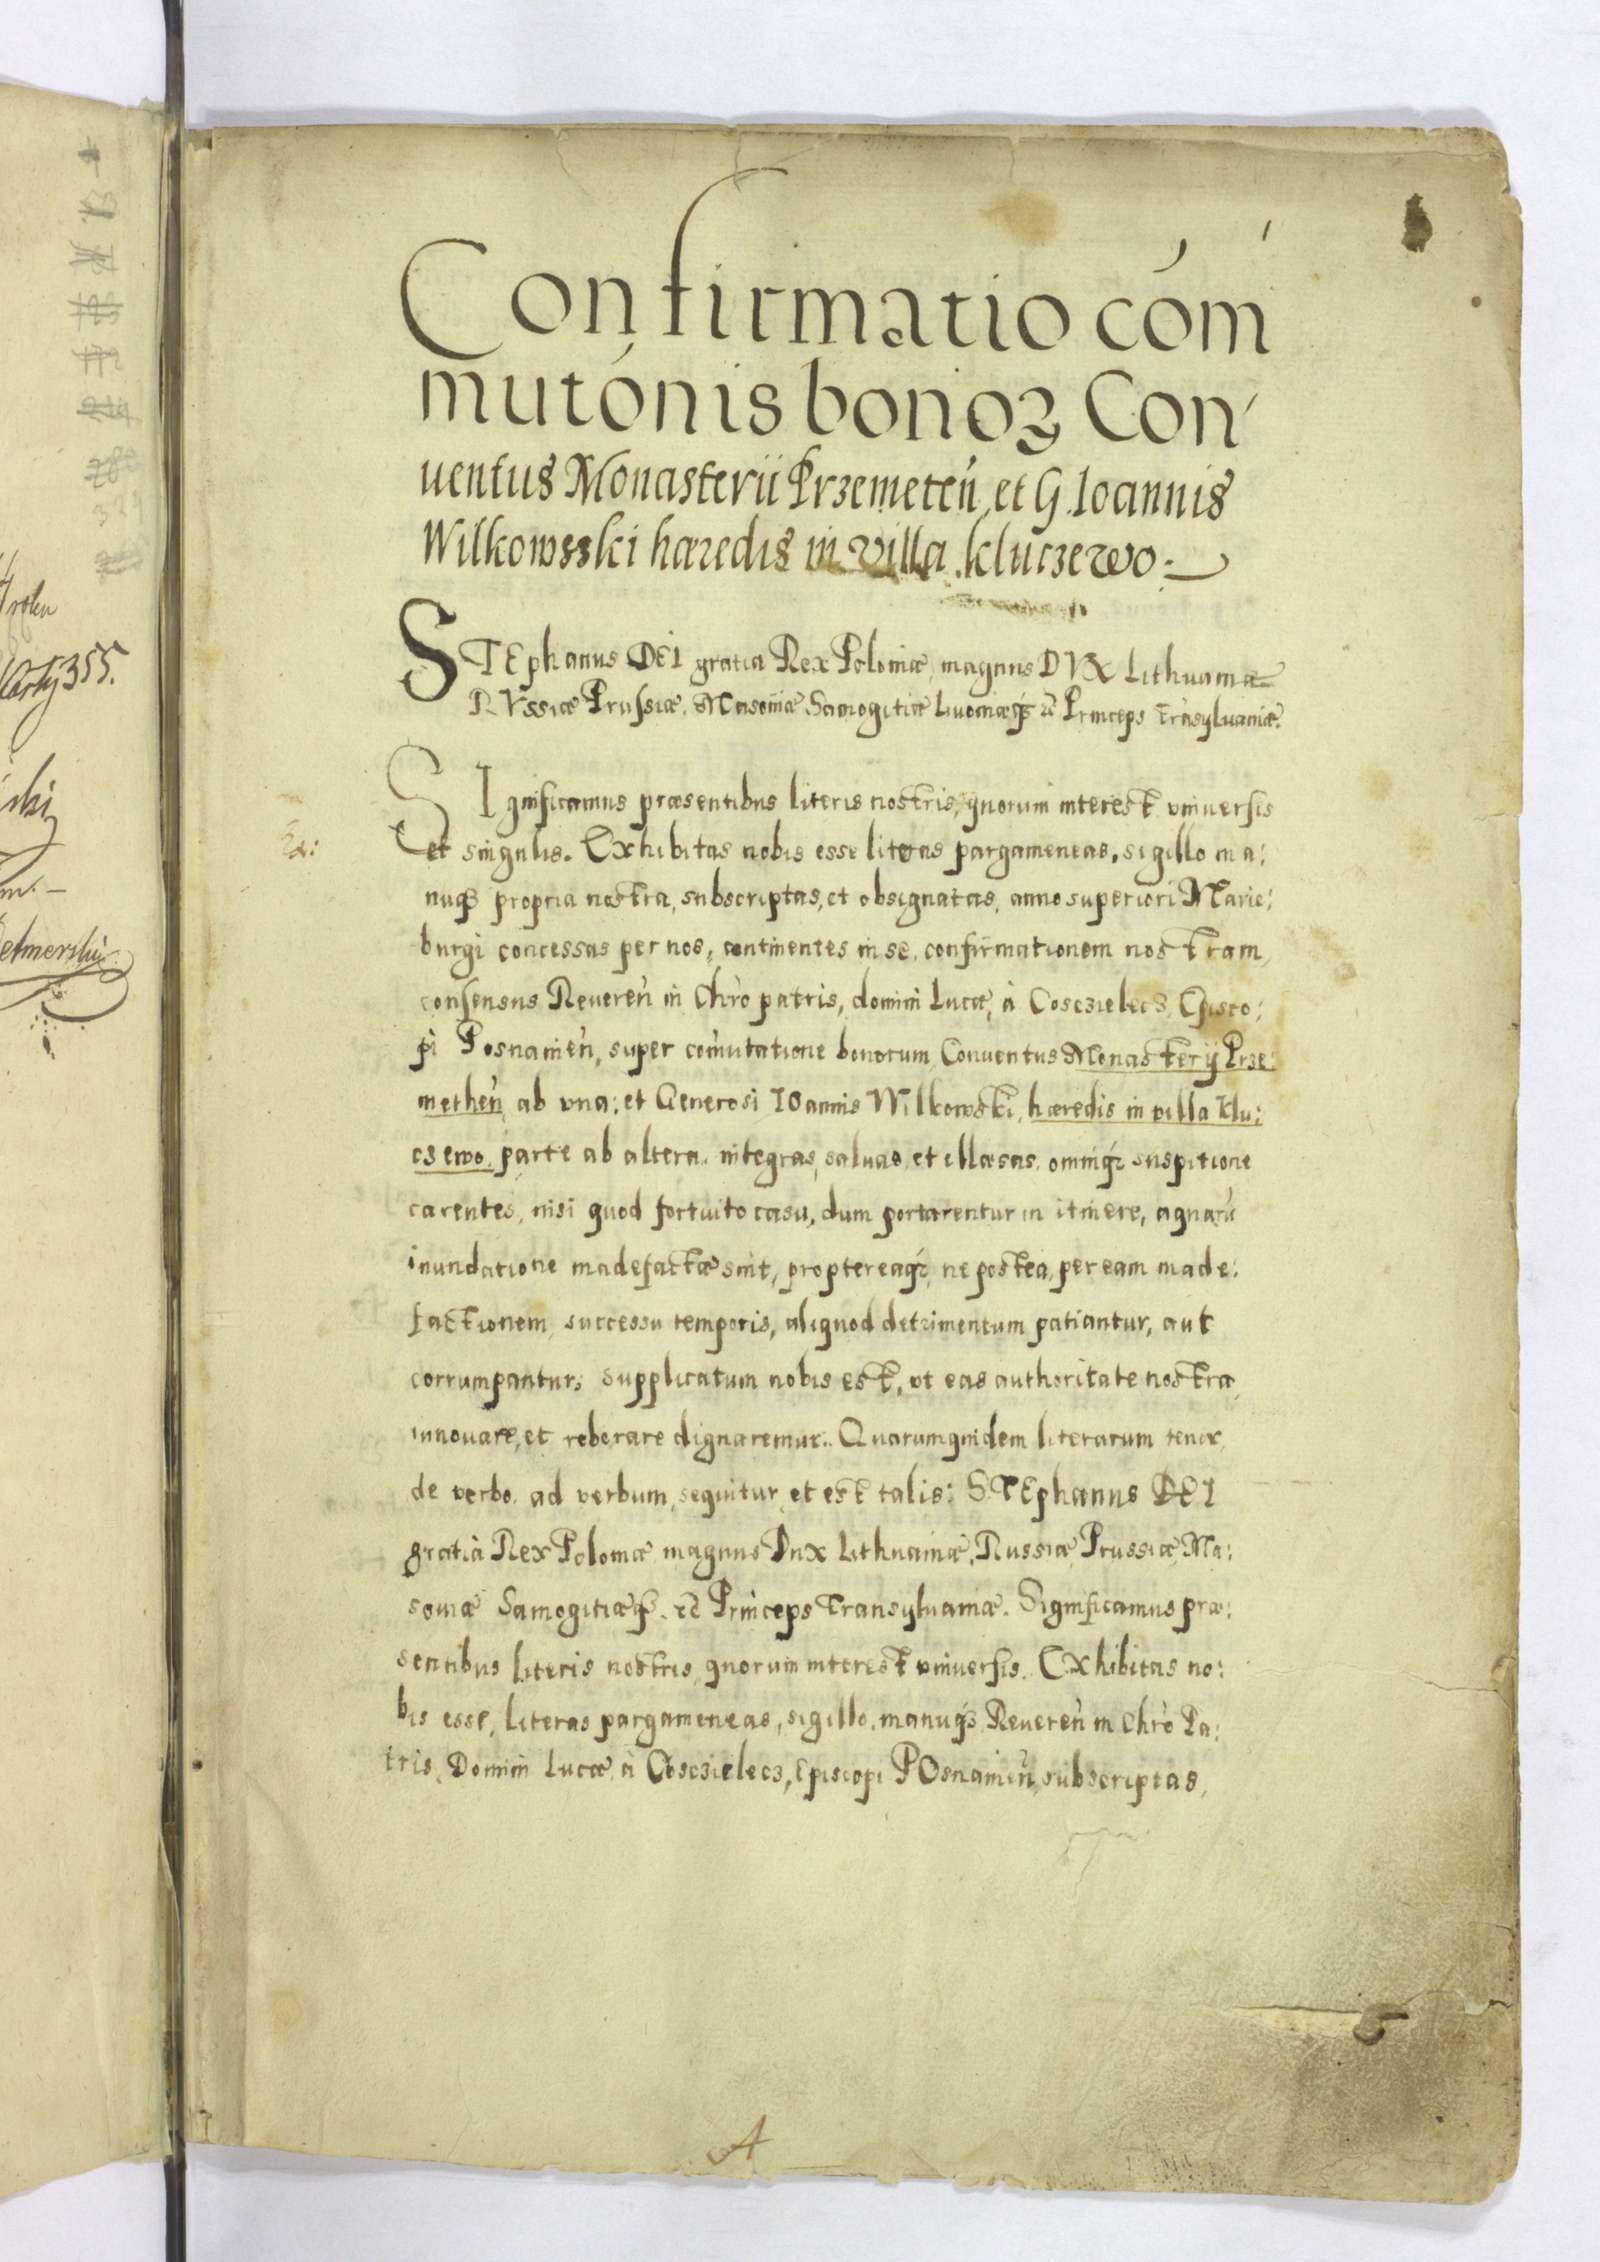 roku
Karty 355.
1
Confirmatio cóm
mutónis bonoꝝ Con
uentus Monasterii Przemeteń, et G. Ioannis
Wilkowsski hæredis in villa kluczewo
STEphanus DEI gratia Rex Poloniæ, magnus DVX Lithuaniæ
RVssiæ Prussiæ, Masouiæ Samogitiæ Liuoniæqꝫ ꝛc Princeps Trāsyluaniæ.
SIgnificamus præsentibus literis nostris, quorum interest vniuersis
et singulis. Exhibitas nobis esse literas pargameneas, sigillo ma:
nuqꝫ propria nostra, subscriptas, et obsignatas, anno superiori Marie:
burgi concessas per nos, continentes in se, confirmationem nostram,
consensus Reuereń in Chrō patris, domini Lucæ, à Cosczielecz, Episco:
pi Posnanień, super com̄utatione bonorum Conuentus Monasterij Prze:
metheń, ab vna: et Generosi IOannis Wilkowski, hæredis in villa Klu:
czewo, parte ab altera, integras, saluas, et illæsas, omniqꝫ suspitione
carentes, nisi quod fortuito casu, dum portarentur in itinere, aquarū
inundatione madefactæ sint, proptereaqꝫ, ne postea, per eam made:
factionem, successu temporis, aliquod detrimentum patiantur, aut
corrumpantur, supplicatum nobis est, vt eas authoritate nostra,
innouare, et roborare dignaremur. Quarumquidem literarum tenor,
de verbo ad verbum, sequitur, et est talis: STEphanus DEI
gratia Rex Poloniæ, magnus Dux Lithuaniæ, Russiæ, Prussiæ, Ma:
souiæ Samogitiæqꝫ. ꝛc Princeps Transyluaniæ. Significamus præ:
sentibus literis nostris, quorum interest vniuersis. Exhibitas no:
bis esse, literas pargameneas, sigillo, manuqꝫ, Reuereń in Chrō Pa:
tris, Domini Lucæ, à Cosczielecz, Episcopi POsnanień, subscriptas,
A